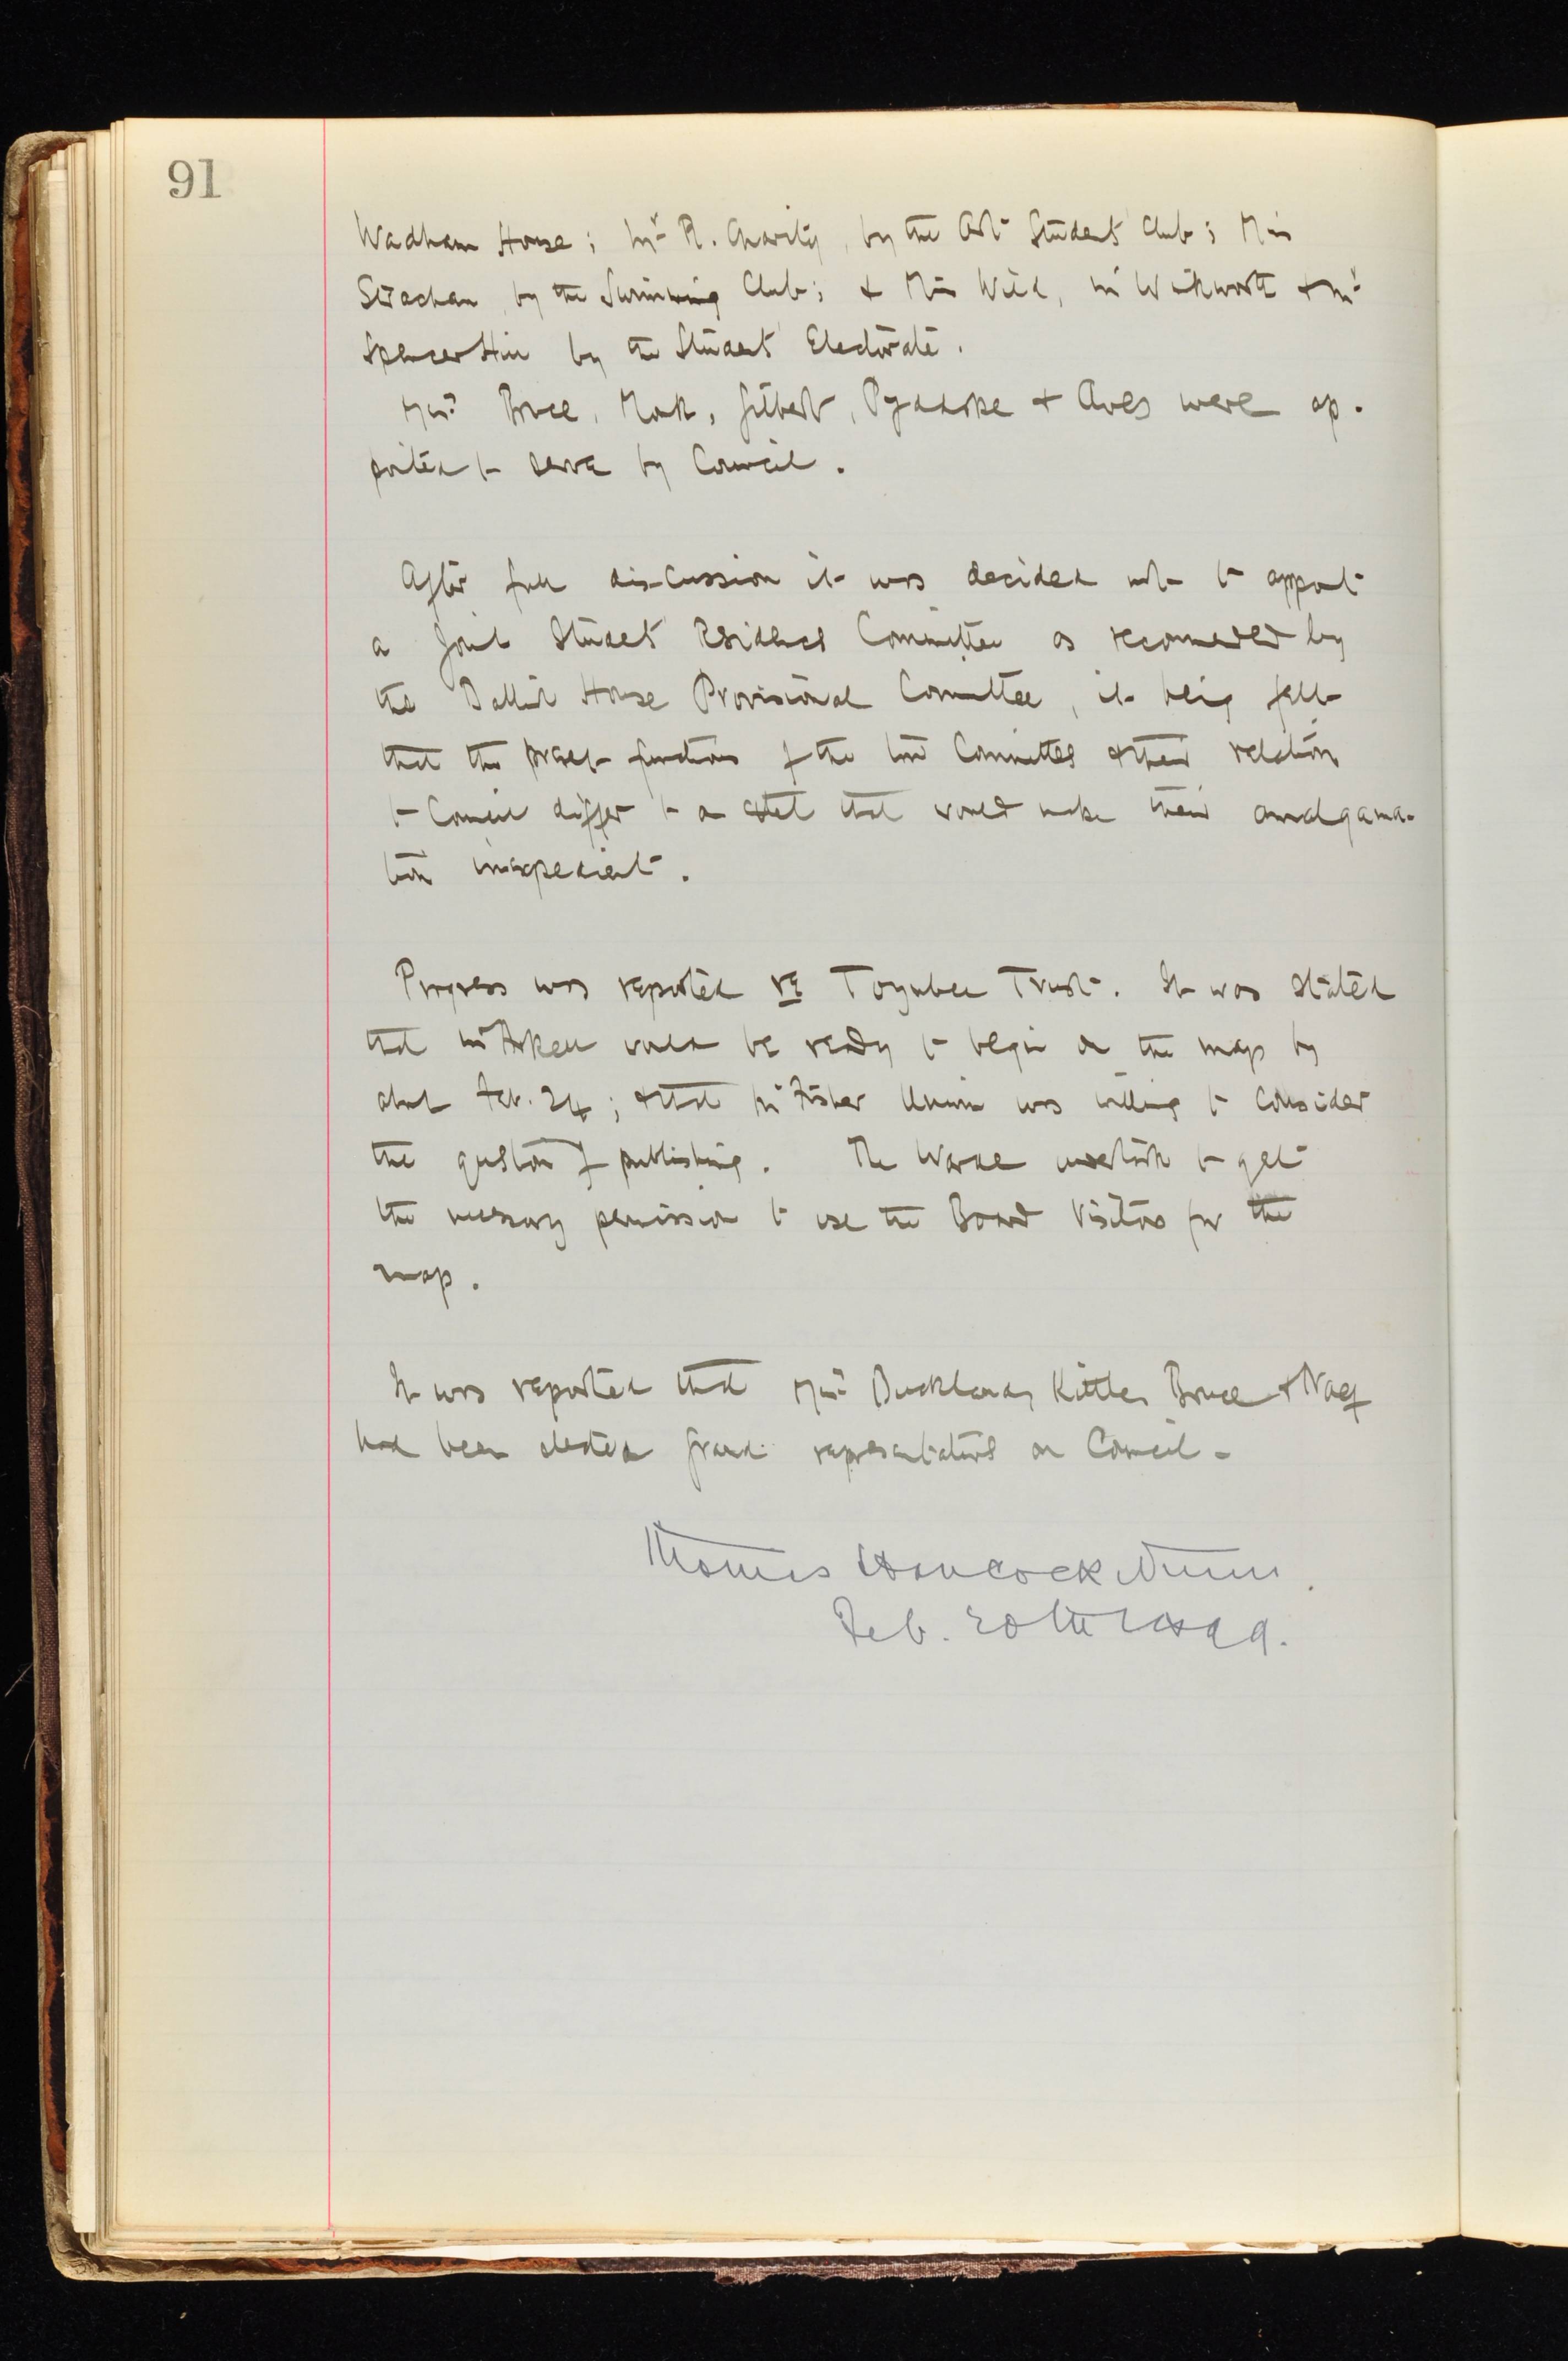 91
Wadham House; Mr R. Charity, by the Art Student Club; Miss
Strachan, by the Swimming Club; & Miss Wild, Mr Winkworth & Mr
Spencer Hill by the Student Electorate.
Messrs Bruce, Monk, Gilbert, & Aves were ap-
pointed to serve by Council.
After full discussion it was decided not to appoint
a Joint Student Residences Committee as recommended by
the Balliol House Provisional Committee, it being felt
that the present functions of the two Committees & their relation
to Council differ to an extent that would make their amalgama-
tion inexpedient.
Progress was reported re Toynbee Trust. It was stated
that Mr Arkell would be ready to begin on the map by
about Feb. 24; & that Mr Fisher Unwin was willing to consider
the question of publishing. The Warden undertook to get
the necessary permission to use the Board Visitors for the
map.
It was reported that Messrs Buckland, Kittle, Bruce & Nash
had been elected Grand: representatives on Council -
Thomas Hancock Nunn.
Feb. 20th 1889.